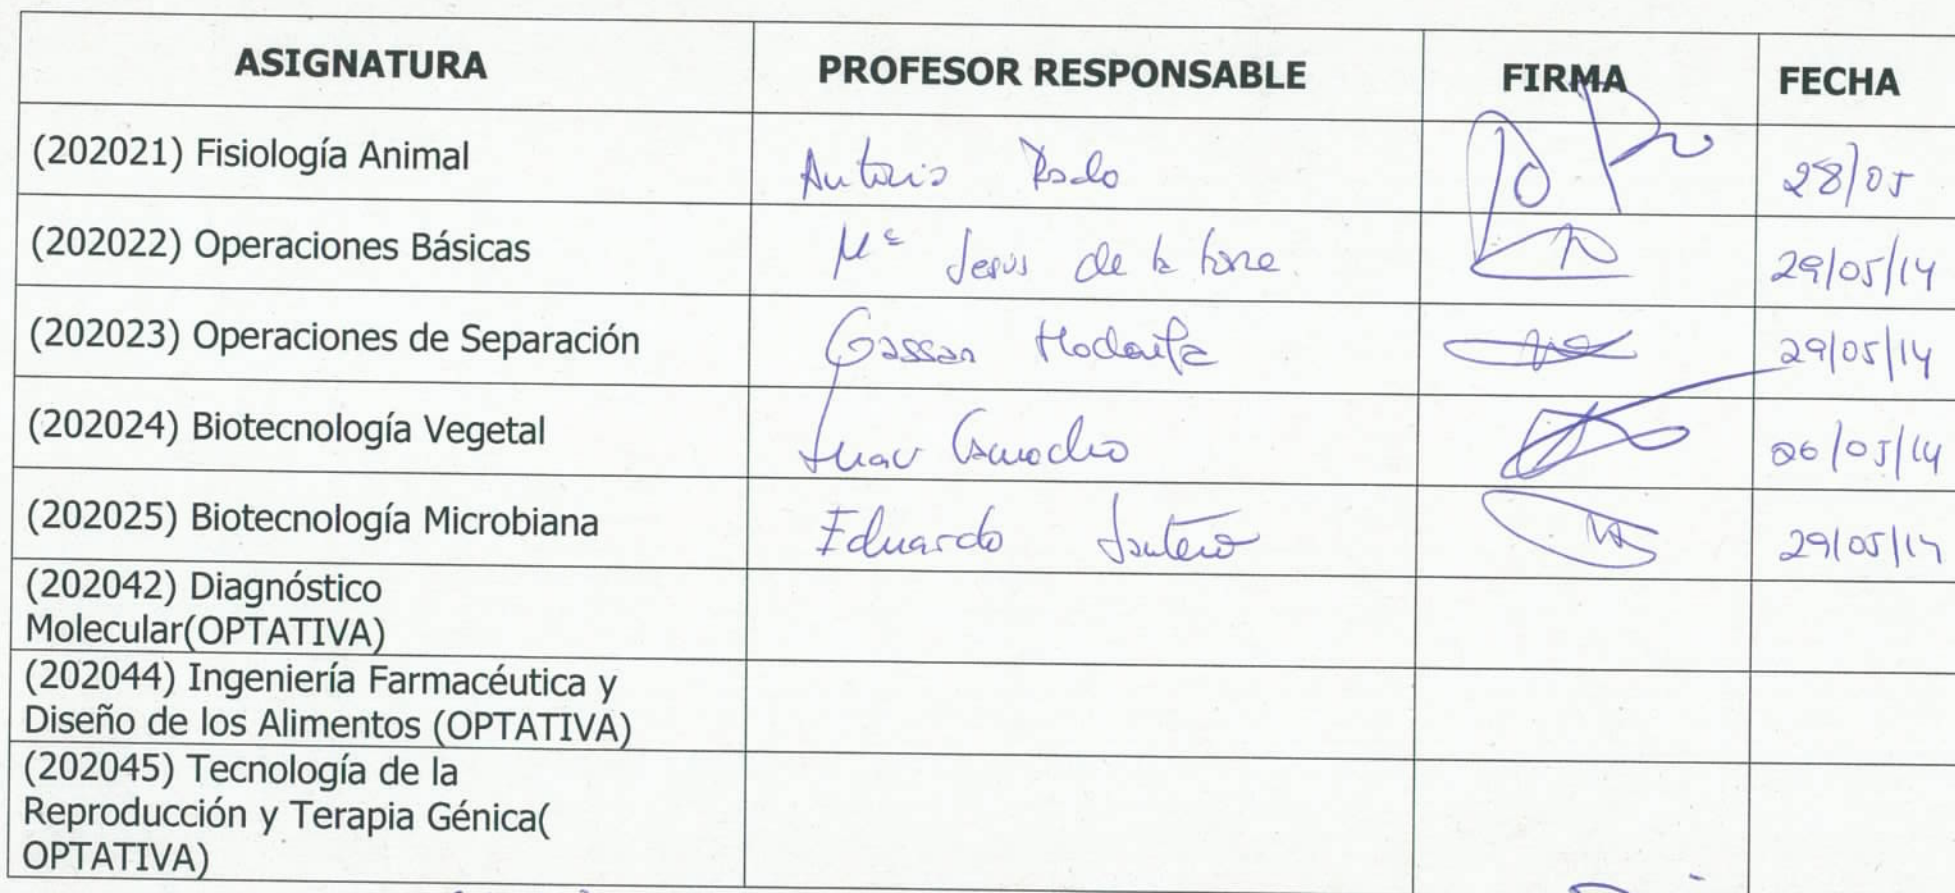 ASIGNATURA PROFESOR RESPONSABLE FIRMA FECHA
(202021) Fisiología Animal Antonio 28/05
(202022) Operaciones Básicas Mª Jesús de la Torre 29/05/14
(202023) Operaciones de Separación Gassan Hodaifa 29/05/14
(202024) Biotecnología Vegetal Juan Camacho 06/05/14
(202025) Biotecnología Microbiana Eduardo Santero 29/05/14
(202042) Diagnóstico
Molecular(OPTATIVA)
(202044) Ingeniería Farmacéutica y
Diseño de los Alimentos (OPTATIVA)
(202045) Tecnología de la
Reproducción y Terapia Génica(
OPTATIVA)